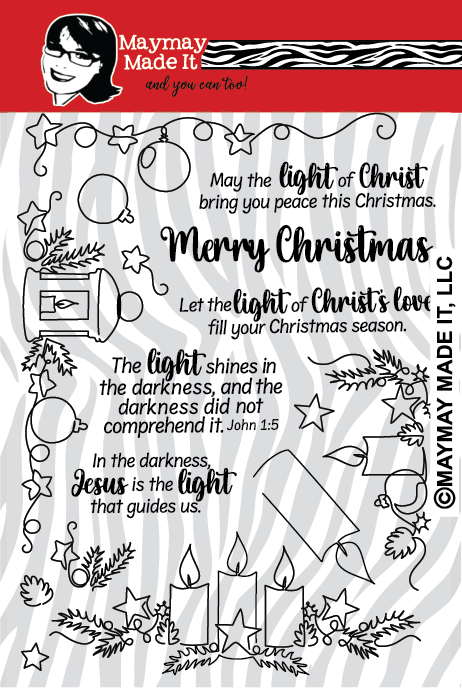 Maymay
Made It
and you can too!
May the light of Christ
bring you peace this Christmas.
Merry Christmas
Let the light of Christ's love
fill your Christmas season.
The light shines in
the darkness, and the
darkness did not
comprehend it. John 1:5
In the darkness,
Jesus is the light
that guides us.
©MAYMAY MADE IT, LLC